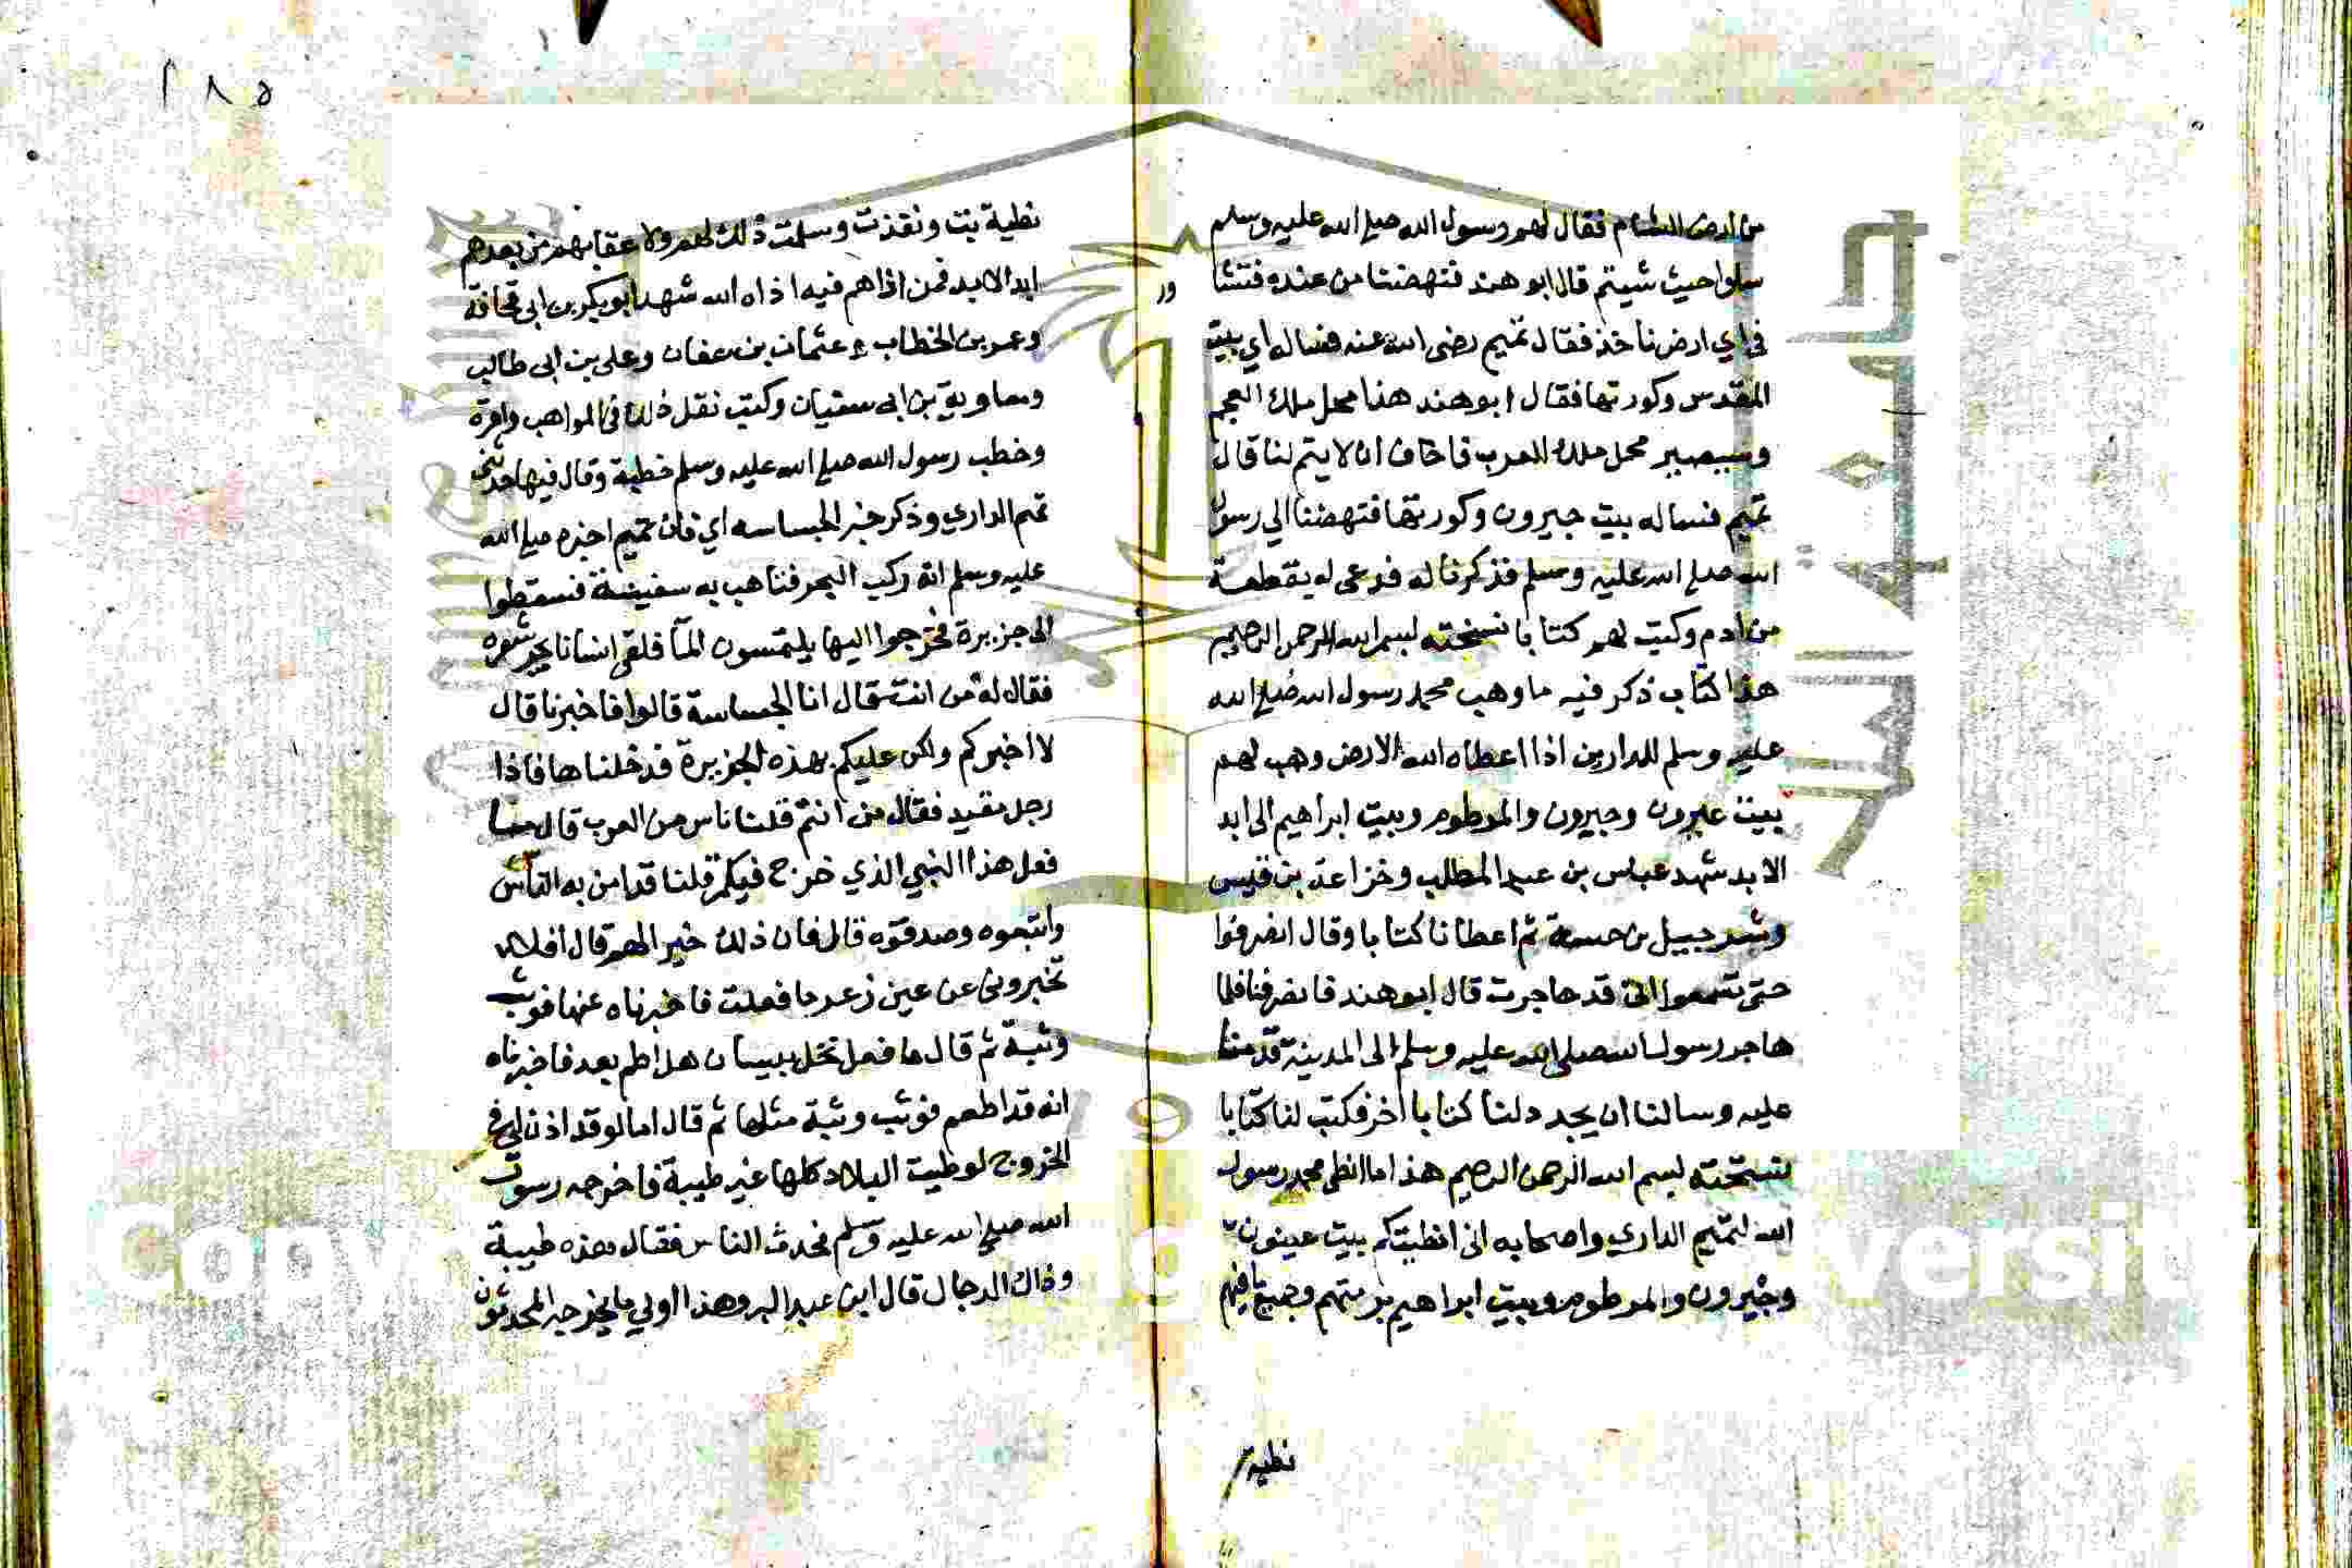 من ارض الشام فقال لهم رسول الله صلى الله عليه وسلم
سلوا حيث شيتم قال ابو هند فنهضنا من عنده فتشا
في اي ارض ناخذ فقال تميم رضى الله عنه فنساله اي بيت
المقدس وكورتها فقال ابو هند هذا محل ملك العجم
وسيصير محل ملك العرب فاخاف ان لا يتم لنا قال
تميم فنساله بيت جبرون وكورتها فنهضنا الي رسول
الله صلى الله عليه وسلم فذكرنا له فدعى له بقطعة
من ادم وكتب لهم كتابا نسخته لبسم الله الرحمن الرحيم
هذا كتاب ذكر فيه ما وهب محمد رسول الله صلى الله
عليه وسلم للدارين اذا اعطاه الله الارض وهب لهم
بيت عبرون وجيرون والمرطوم وبيت ابراهيم الى ابد
الابد شهد عباس بن عبد المطلب وخزاعة بن قيس
وشرجبيل بن حسنة ثم اعطانا كتابا وقال انصرفوا
حتى تسمعوا انى قد هاجرت قال ابو هند فانصرفنا فلما
هاجر رسول الله صلى الله عليه وسلم الى المدينة قدمنا
عليه وسالنا ان يجدد لنا كتابا اخر فكتب لنا كتابا
نستخته لبسم الله الرحمن الرحيم هذا ما انطى محمد رسول
الله لتميم الداري واصحابه انى انطيتكم بيت عينون
وجيرون والمرطوم وبيت ابراهيم برمتهم وجميع ما فيهم
نطية
١٨٥
نطية بت ونفذت وسلمت ذلك لهم ولاعقابهم من بعدهم
ابد الابد فمن اذاهم فيه اذاه الله شهد ابو بكر بن ابى قحافة
وعمر بن الخطاب وعثمان بن عفان وعلى بن ابى طالب
ومعاوية بن ابى سفيان وكتب نقل ذلك في المواهب واقره
وخطب رسول الله صلى الله عليه وسلم خطبة وقال فيها حدثنى
تميم الداري وذكر خبر الجساسه اي فان تميم اخبره صلى الله
عليه وسلم انه ركب البحر فتاهب به سفينة فسقطوا
الى جزيرة فخرجوا اليها يلتمسون الما فلقى انسانا يجر شعره
فقال له من انت قال انا الجساسة قالوا فاخبرنا قال
لا اخبركم ولكن عليكم بهذه الجزيرة فدخلناها فاذا
رجل مقيد فقال من انتم قلنا ناس من العرب قال ما
فعل هذا النبي الذي خرج فيكم قلنا قد امن به الناس
واتبعوه وصدقوه قال فان ذلك خير لهم قال افلا
تخبروني عن عين زعر ما فعلت فاخبرناه عنها فوثب
وثبة ثم قال ما فعل نخل بيسان هل اطم بعد فاخبرناه
انه قد اطعم فوثب وثبة مثلها ثم قال اما لو قد اذن لي في
الخروج لوطيت البلاد كلها غير طيبة فاخرجه رسول
الله صلى الله عليه وسلم فحدث الناس فقال هذه طيبة
وذاك الدجال قال ابن عبد البر وهذا اولي ما يخرجه المحدثون